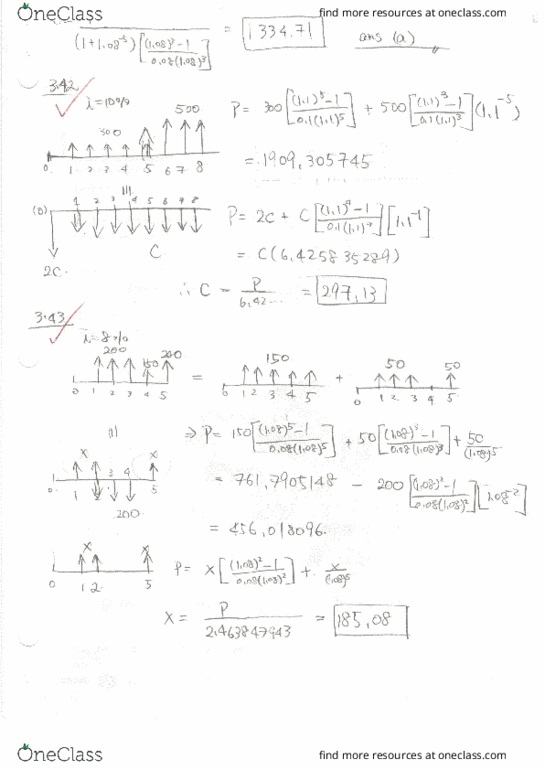 OneClass
find more resources at oneclass.com
(1+1.08⁻⁵)[(1.08)³-1 / 0.08(1.08)³] = 1334.71 ans (a)
3.42
i=10% 500
300
0 1 2 3 4 5 6 7 8
P= 300[(1.1)⁵-1 / 0.1(1.1)⁵] + 500[(1.1)³-1 / 0.1(1.1)³](1.1⁻⁵)
= 1909,305745
|||
1 2 3 4 5 6 7 8
C
2C.
P= 2C + C[(1.1)⁸-1 / 0.1(1.1)⁷][1.1⁻¹]
= C(6,425835289)
∴ C = P / 6,42... = 297,13
3.43
i=8%
200 150 200
0 1 2 3 4 5
=
150
0 1 2 3 4 5
+
50 50
0 1 2 3 4 5
x 3 4 x
0. 1 2 5
200
⇒ P= 150[(1.08)⁵-1 / 0.08(1.08)⁵] + 50[(1.08)³-1 / 0.08(1.08)³] + 50/(1.08)⁵
= 761,7905148 - 200[(1.08)²-1 / 0.08(1.08)²][1.08²]
= 456,018096.
x x
0 1 2 5
P= x[(1.08)²-1 / 0.08(1.08)²] + x/(1.08)⁵
X = P / 2.463847943 = 185,08
OneClass
find more resources at oneclass.com